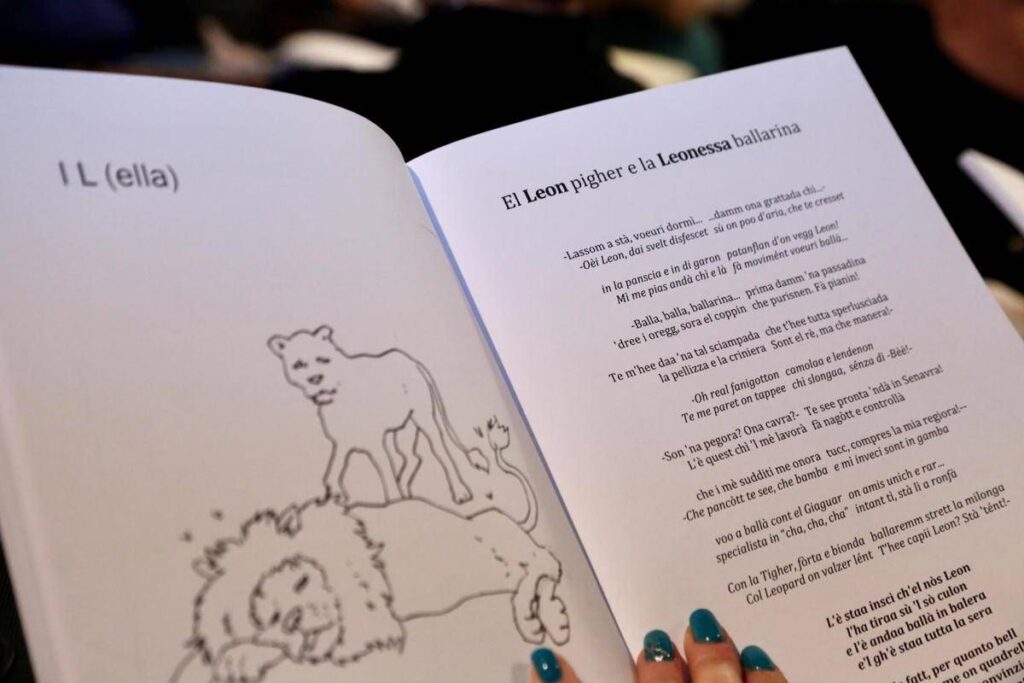 I L (ella)
El Leon pigher e la Leonessa ballarina
-Lassom a stà, voeuri dormì... ..damm ona grattada chi...-
-Oèi Leon, dai svelt disfescet sù on poo d'aria, che te cresset
in la panscia e in di garon patanflan d'on vegg Leon!
Mi me pias andà chì e là fà movimént voeuri ballà...
-Balla, balla, ballarina... prima damm 'na passadina
'dree i oregg, sora el coppin che purisnen. Fà pianin!
Te m'hee daa 'na tal sciampada che t'hee tutta sperlusciada
la pellizza e la criniera Sont el rè, ma che manera!-
-Oh real fanigotton camolaa e lendenon
Te me paret on tappee chi slongaa, sénza dì -Bèè!-
-Son 'na pegora? Ona cavra?- Te see pronta 'ndà in Senavra!
L'è quest chì 'l mè lavorà fà nagòtt e controllà
che i mè sudditi me onora tucc, compres la mia regiora!--
-Che pancòtt te see, che bamba e mi inveci sont in gamba
voo a ballà cont el Giaguar on amis unich e rar...
specialista in "cha, cha, cha" intant tì, stà lì a ronfà
Con la Tigher, fòrta e bionda ballaremm strett la milonga
Col Leopard on valzer lént T'hee capii Leon? Stà 'tént!-
L'è staa inscì ch'el nòs Leon
l'ha tiraa sù 'l sò culon
e l'è andaa ballà in balera
e'l gh'è staa tutta la sera
fatt, per quanto bell
me on quadrell